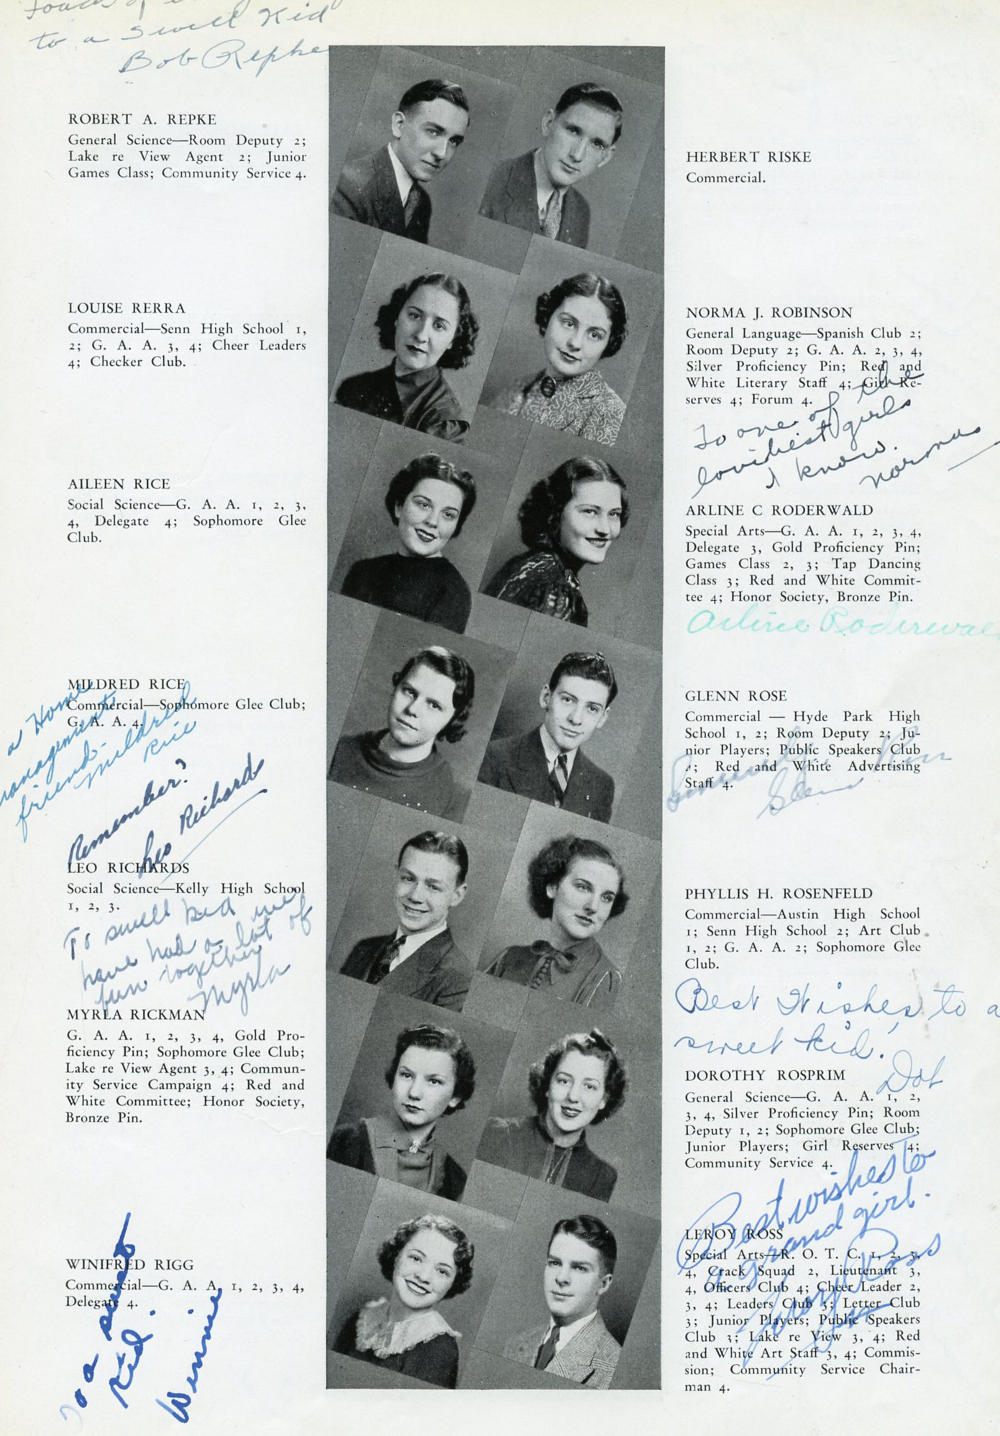 to a Swell Kid
Bob Repke
ROBERT A. REPKE
General Science—Room Deputy 2;
Lake re View Agent 2; Junior
Games Class; Community Service 4.
LOUISE RERRA
Commercial—Senn High School 1,
2; G. A. A. 3, 4; Cheer Leaders
4; Checker Club.
AILEEN RICE
Social Science—G. A. A. 1, 2, 3,
4, Delegate 4; Sophomore Glee
Club.
MILDRED RICE
Commercial—Sophomore Glee Club;
G. A. A. 4.
a Home
management
friend-
Mildred
Rice
Remember?
Leo Richards
LEO RICHARDS
Social Science—Kelly High School
1, 2, 3.
To swell kid we
have had a lot of
fun together
Myrla
MYRLA RICKMAN
G. A. A. 1, 2, 3, 4, Gold Pro-
ficiency Pin; Sophomore Glee Club;
Lake re View Agent 3, 4; Commun-
ity Service Campaign 4; Red and
White Committee; Honor Society,
Bronze Pin.
WINIFRED RIGG
Commercial—G. A. A. 1, 2, 3, 4,
Delegate 4.
To a sweet
Kid.
Winnie
HERBERT RISKE
Commercial.
NORMA J. ROBINSON
General Language—Spanish Club 2;
Room Deputy 2; G. A. A. 2, 3, 4,
Silver Proficiency Pin; Red and
White Literary Staff 4; Girl Re-
serves 4; Forum 4.
To one of the
loveliest girls
I know.
Norma
ARLINE C RODERWALD
Special Arts—G. A. A. 1, 2, 3, 4,
Delegate 3, Gold Proficiency Pin;
Games Class 2, 3; Tap Dancing
Class 3; Red and White Commit-
tee 4; Honor Society, Bronze Pin.
Arline Roderwald
GLENN ROSE
Commercial — Hyde Park High
School 1, 2; Room Deputy 2; Ju-
nior Players; Public Speakers Club
; Red and White Advertising
Staff 4.
Sincerely
Glenn Rose
PHYLLIS H. ROSENFELD
Commercial—Austin High School
1; Senn High School 2; Art Club
1, 2; G. A. A. 2; Sophomore Glee
Club.
Best Wishes to a
sweet kid!
Dot
DOROTHY ROSPRIM
General Science—G. A. A. 1, 2,
3, 4, Silver Proficiency Pin; Room
Deputy 1, 2; Sophomore Glee Club;
Junior Players; Girl Reserves 4;
Community Service 4.
Best wishes to
a grand girl.
Leroy Ross
LEROY ROSS
Special Arts—R. O. T. C. 1, 2, 3,
4, Crack Squad 2, Lieutenant 3,
4, Officers Club 4; Cheer Leader 2,
3, 4; Leaders Club 3; Letter Club
3; Junior Players; Public Speakers
Club 3; Lake re View 3, 4; Red
and White Art Staff 3, 4; Commis-
sion; Community Service Chair-
man 4.